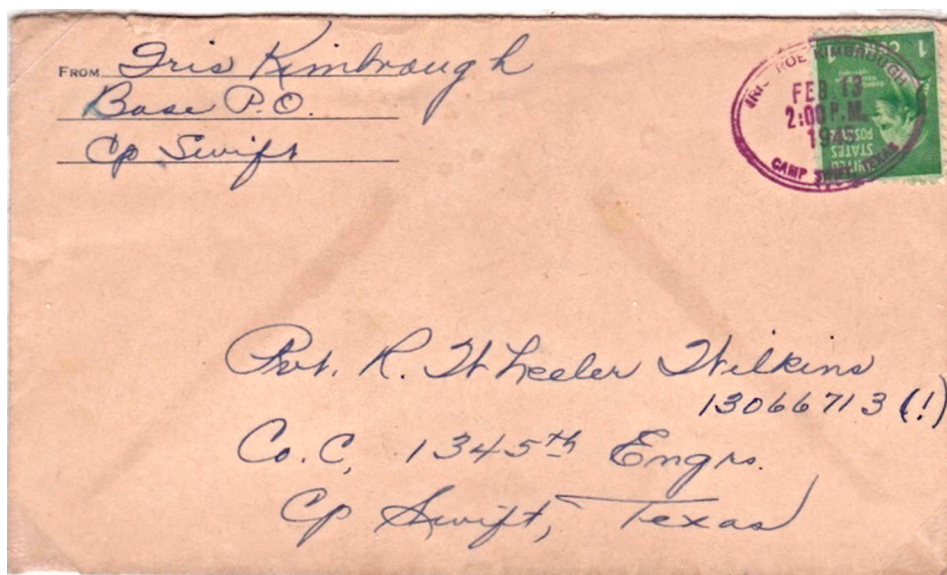 FROM Iris Kimbrough
Base P.O.
Cp Swift
IRIS ROE KIMBROUGH
FEB 13
2:00 P.M.
CAMP SWIFT, TEXAS
1 CENT 1
UNITED
STATES
POSTAGE
Pvt. R. Wheeler Wilkins
13066713 (!)
Co. C, 1345th Engrs.
Cp Swift, Texas